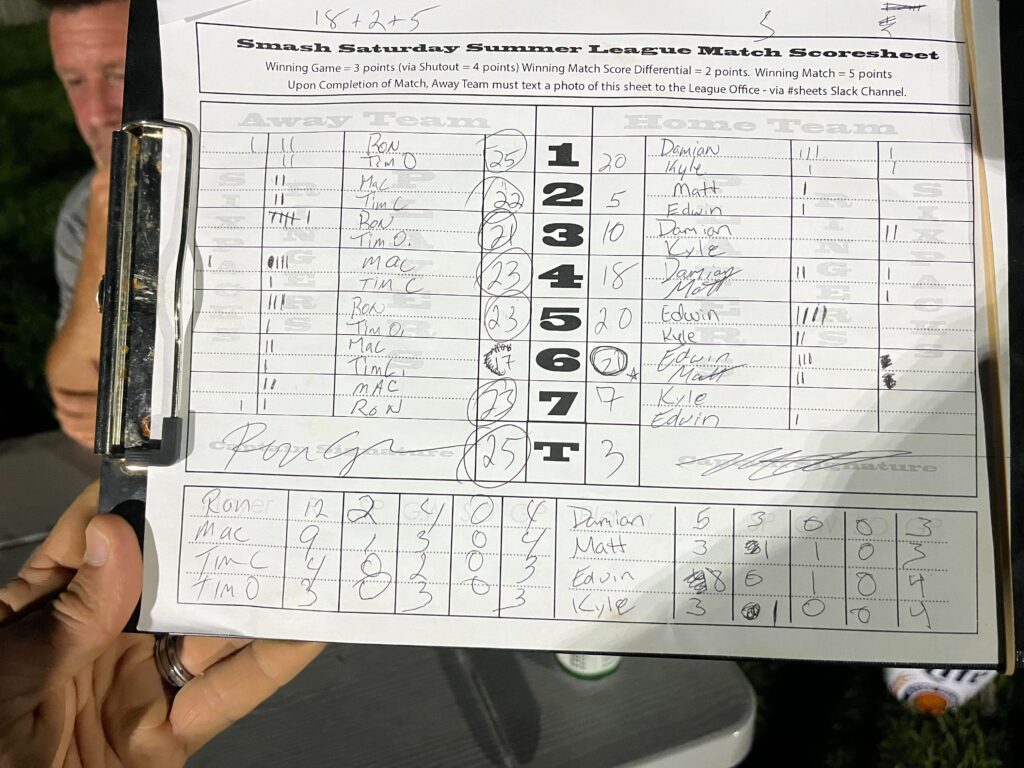 18 + 2 + 5
3
Smash Saturday Summer League Match Scoresheet
Winning Game = 3 points (via Shutout = 4 points) Winning Match Score Differential = 2 points. Winning Match = 5 points
Upon Completion of Match, Away Team must text a photo of this sheet to the League Office - via #sheets Slack Channel.
Away Team Home Team
Ron 25 1 20 Damian
Tim O Kyle
Mac 22 2 5 Matt
Tim C Edwin
Ron 21 3 10 Damian
Tim O. Kyle
Mac 23 4 18 Damian
Tim C Matt
Ron 23 5 20 Edwin
Tim O. Kyle
Mac 17 6 21 Edwin
Tim C. Matt
MAC 23 7 7 Kyle
RON Edwin
Captain Signature 25 T 3 Captain Signature
Ron 12 2 4 0 4 Damian 5 3 0 0 3
Mac 9 1 3 0 4 Matt 3 1 1 0 3
Tim C 4 0 2 0 3 Edwin 8 0 1 0 4
Tim O 3 0 3 0 3 Kyle 3 1 0 0 4